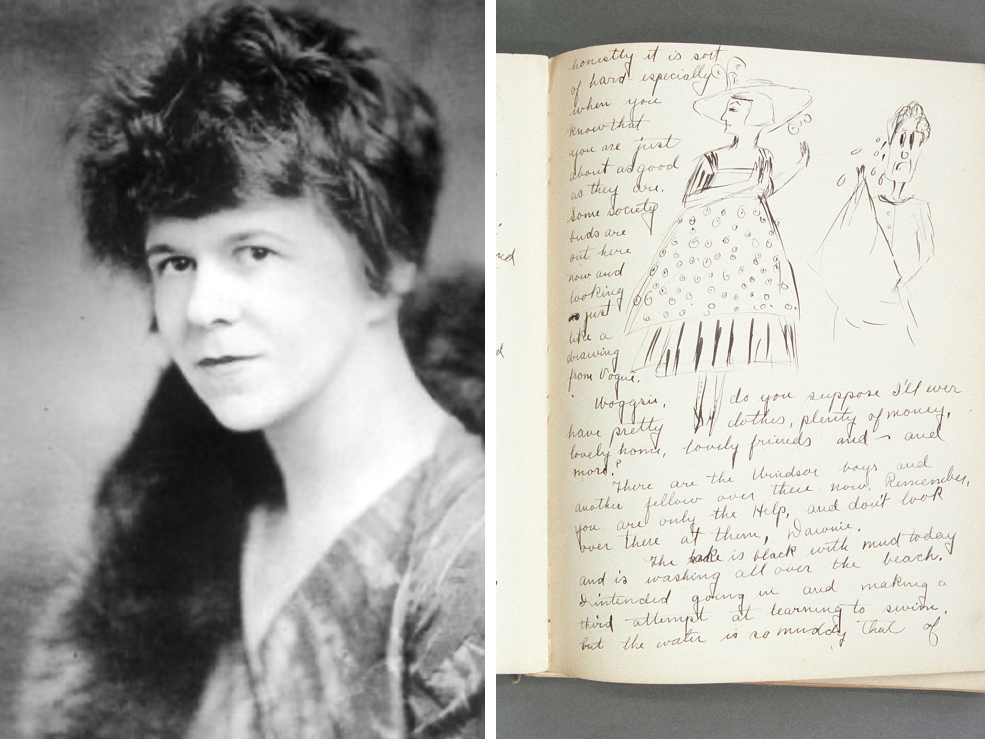 honestly it is sort
of hard especially
when you
know that
you are just
about as good
as they are.
Some society
buds are
out here
now and
looking
just
like a
drawing
from Vogue.
Woggsie, do you suppose I'll ever
have pretty clothes, plenty of money,
lovely home, lovely friends and - and
more?
There are the Windsor boys and
another fellow over there now. Remember,
you are only the Help, and don't look
over there at them, Dawnie.
The lake is black with mud today
and is washing all over the beach.
I intended going in and making a
third attempt at learning to swim.
but the water is so muddy that of
nd
d